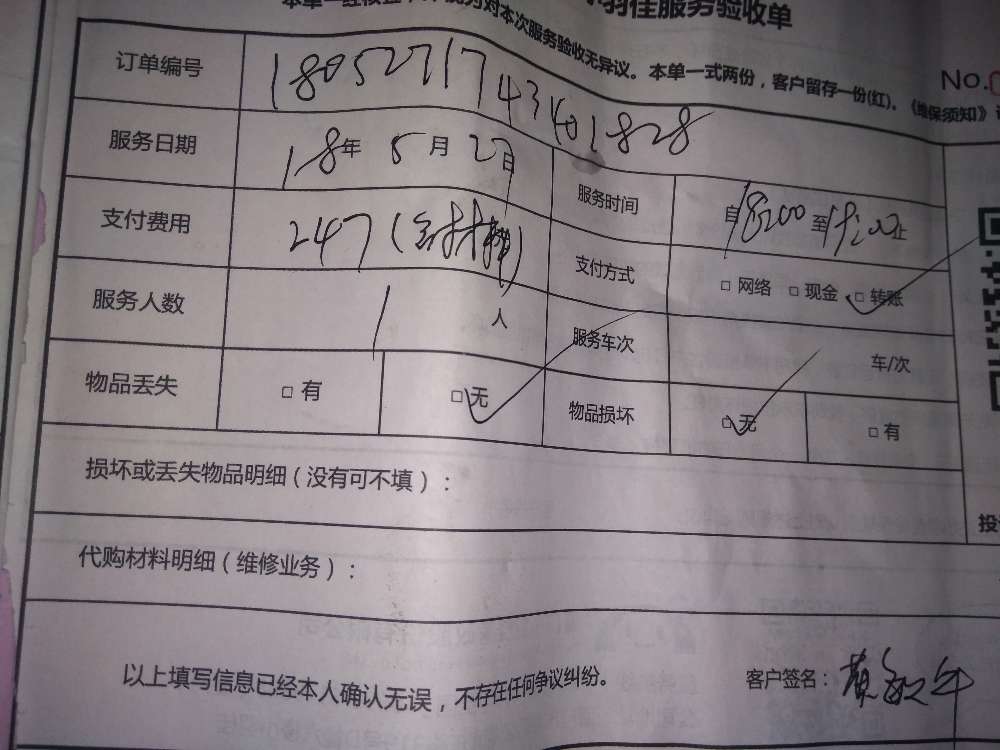 羽佳服务验收单
对本次服务验收无异议。本单一式两份，客户留存一份(红)。《维保须知》
No.
订单编号 180527174340​1828
服务日期 18年 5月 27日 服务时间 自18:00至19:00止
支付费用 247（含材料） 支付方式 □ 网络 □ 现金 □ 转账
服务人数 1 人 服务车次 车/次
物品丢失 □ 有 □ 无 物品损坏 □ 无 □ 有
损坏或丢失物品明细（没有可不填）：
投
代购材料明细（维修业务）：
以上填写信息已经本人确认无误，不存在任何争议纠纷。 客户签名：黄